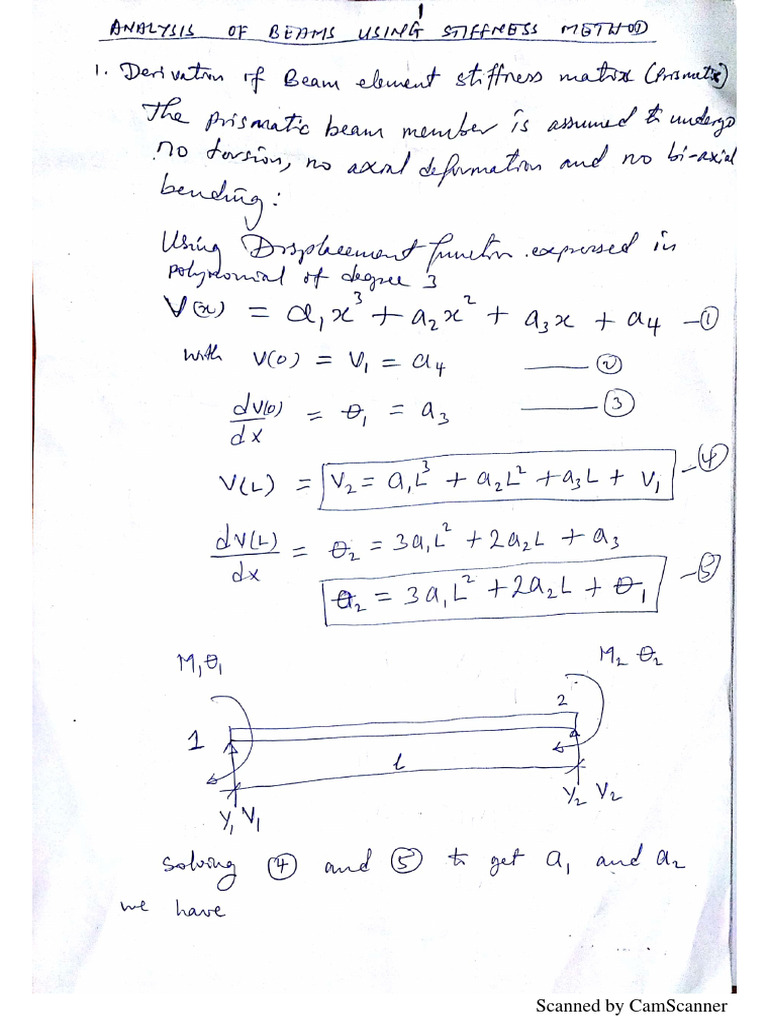 1
ANALYSIS OF BEAMS USING STIFFNESS METHOD
1. Derivation of Beam element stiffness matrix (Prismatic)
The prismatic beam member is assumed to undergo
no torsion, no axial deformation and no bi-axial
bending:
Using Displacement function expressed in
polynomial of degree 3
V(x) = a₁x³ + a₂x² + a₃x + a₄ — ①
with V(0) = V₁ = a₄ —— ②
dV(0)/dx = θ₁ = a₃ —— ③
V(L) = V₂ = a₁L³ + a₂L² + a₃L + V₁ — ④
dV(L)/dx = θ₂ = 3a₁L² + 2a₂L + a₃
θ₂ = 3a₁L² + 2a₂L + θ₁ — ⑤
M₁θ₁
M₂ θ₂
1
2
L
Y₁ V₁
Y₂ V₂
Solving ④ and ⑤ to get a₁ and a₂
we have
Scanned by CamScanner